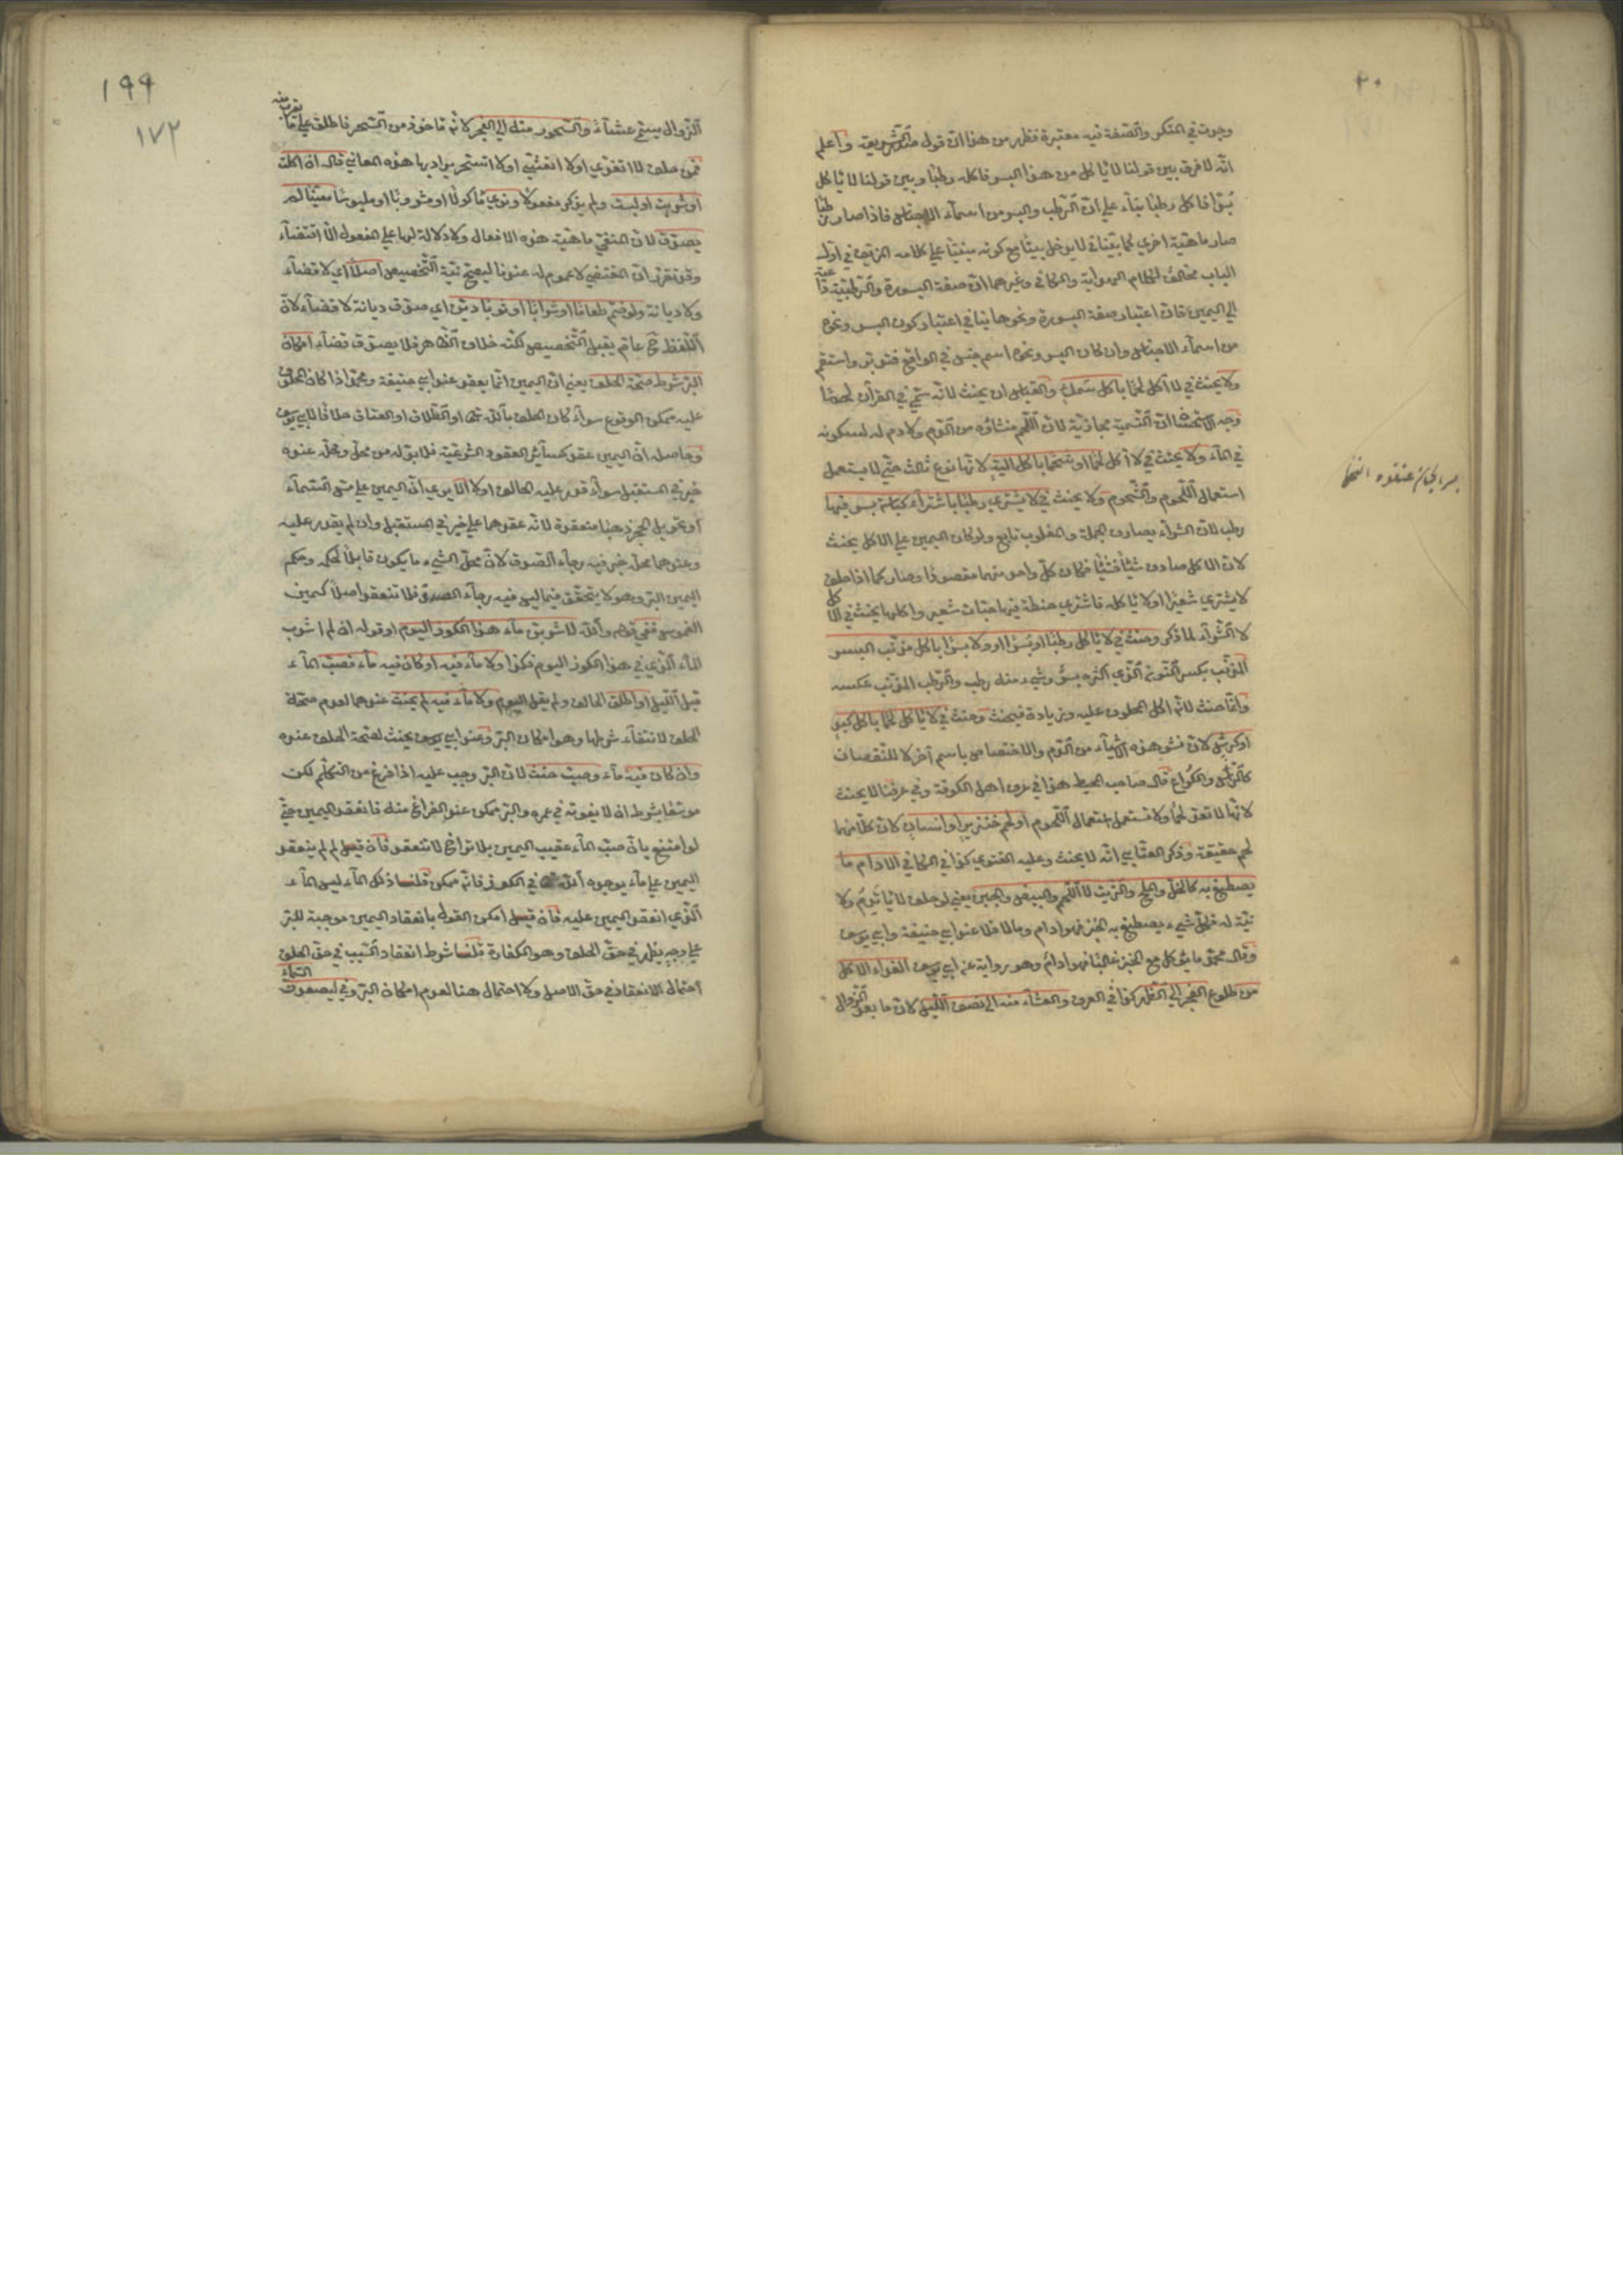 وجوت في المنكر والصفة فيه معتبرة فظهر من هذا ان قول صدر الشريعة واعلم
انه لا فرق بين قولنا لا يأكل من هذا البسر فاكله رطبا وبين قولنا لا يأكل
بسرا فاكل رطبا بناء على ان الرطب والبسر من اسماء الاجناس فاذا صار رطبا
صار ماهية اخرى كما بينا في لا يدخل بيتا مع كونه مبنيا على كلامه في اول
الباب مخالف لكلام الهداية والكافي وغيرهما ان صفة البسورة والرطبية داعية
الى اليمين فان اعتبار صفة البسورة ونحوها ينافي اعتبار كون البسر ونحوه
من اسماء الاجناس وان كان البسر ونحوه اسم جنس في الواقع فتدبر واستقم
ولا يحنث في لا آكل لحما باكل سمك والقياس ان يحنث لانه سمي في القرآن لحما
وجه الاستحسان ان التسمية مجازية لان اللحم منشاؤه من الدم ولا دم له لسكونه
في الماء ولا يحنث في لا آكل لحما او شحما باكل الية لانها نوع ثالث حتى لا يستعمل
استعمال اللحوم والشحوم ولا يحنث في لا يشتري رطبا باشتراء كباسة بسر فيها
رطب لان الشراء يصادف الجملة والمغلوب تابع ولو كان اليمين على الاكل يحنث
لان الاكل صادف شيئا فشيئا فكان كل واحد منهما مقصودا وصار كما اذا حلف
لا يشتري شعيرا او لا يأكله فاشترى حنطة فيها حبات شعير واكلها يحنث في الاكل
لا الشراء لما ذكر وحنث في لا يأكل رطبا او بسرا او ولا بسرا باكل مذنب البسر
المذنب بكسر النون الذي اكثره بسر وشيء منه رطب والرطب المذنب عكسه
وانما حنث لانه اكل المحلوف عليه وزيادة فيحنث وحنث في لا يأكل لحما باكل كبد
او كرش لان نشو هذه الاشياء من الدم والاختصاص باسم آخر لا للنقصان
كالرأس والكراع قال صاحب المحيط هذا في عرف اهل الكوفة وفي عرفنا لا يحنث
لانها لا تعد لحما ولا تستعمل استعمال اللحوم او لحم خنزير او انسان لان كلا منهما
لحم حقيقة وذكر العتابي انه لا يحنث وعليه الفتوى كذا في الكافي الادام ما
يصطبغ به كالخل والملح والزيت لا اللحم والبيض والجبن يعني لو حلف لا يأتدم ولا
نية له فكل شيء يصطبغ به الخبز فهو ادام وما لا فلا عند ابي حنيفة وابي يوسف
وقال محمد ما يؤكل مع الخبز غالبا فهو ادام وهو رواية عن ابي يوسف الغداء الاكل
من طلوع الفجر الى الظهر كذا في العرف والعشاء منه الى نصف الليل لان ما بعد الزوال
١٩٩
١٧٢
الزوال يسمى عشاء والسحور منه الى الفجر لانه مأخوذ من السحر فاطلق على ما يقرب منه
فمن حلف لا اتغدى او لا اتعشى او لا اتسحر يراد بها هذه المعاني قال ان اكلت
او شربت او لبست ولم يذكر مفعولا ونوى مأكولا او مشروبا او ملبوسا معينا لم
يصدق لان المنفي ماهية هذه الافعال ولا دلالة لها على المفعول الا اقتضاء
وقد تقرر ان المقتضى لا عموم له عندنا ليصح نية التخصيص اصلا اي لا قضاء
ولا ديانة ولو ضم طعاما او شرابا او ثوبا دين اي صدق ديانة لا قضاء لان
اللفظ ح عام يقبل التخصيص لكنه خلاف الظاهر فلا يصدق قضاء امكان
البر شرط صحة الحلف يعني ان اليمين انما يعقد عند ابي حنيفة ومحمد اذا كان المحلوف
عليه ممكن الوقوع سواء كان الحلف بالله تعالى او الطلاق او العتاق خلافا لابي يوسف
وحاصله ان اليمين عقد كسائر العقود الشرعية فلا بد له من محل ومحله عنده
خبر في المستقبل سواء قدر عليه الحالف او لا الا يرى ان اليمين على مس السماء
او تحويل الحجر ذهبا منعقدة لانه عقدها على خبر في المستقبل وان لم يقدر عليه
وعندهما محله خبر فيه رجاء الصدق لان محل الشيء ما يكون قابلا لحكمه وحكم
اليمين البر وهو لا يتحقق فيما ليس فيه رجاء الصدق فلا تنعقد اصلا كيمين
الغموس ففي قوله والله لاشربن ماء هذا الكوز اليوم او قوله ان لم اشرب
الماء الذي في هذا الكوز اليوم فكذا ولا ماء فيه او كان فيه ماء فصب الماء
قبل الليل او اطلق الحالف ولم يقل اليوم ولا ماء فيه لم يحنث عندهما لعدم صحة
الحلف لانتفاء شرطها وهو امكان البر وعند ابي يوسف يحنث لصحة الحلف عنده
وان كان فيه ماء وصب حنث لان البر وجب عليه اذا فرغ من التكلم لكن
موسعا بشرط ان لا يفوته في عمره والبر ممكن عند الفراغ منه فانعقد اليمين حتى
لو امتنع بان صب الماء عقيب اليمين بلا تراخ لا تنعقد فان قيل لم لم ينعقد
اليمين على ماء يوجده الله في الكوز فانه ممكن قلنا ذلك الماء ليس الماء
الذي انعقد اليمين عليه فان قيل امكن القول بانعقاد اليمين موجبة للبر
على وجه يظهر في حق الخلف وهو الكفارة قلنا شرط انعقاد السبب في حق الخلف
احتمال الانعقاد في حق الاصل ولا احتمال هنا لعدم امكان البر وفي ليصعدن السماء